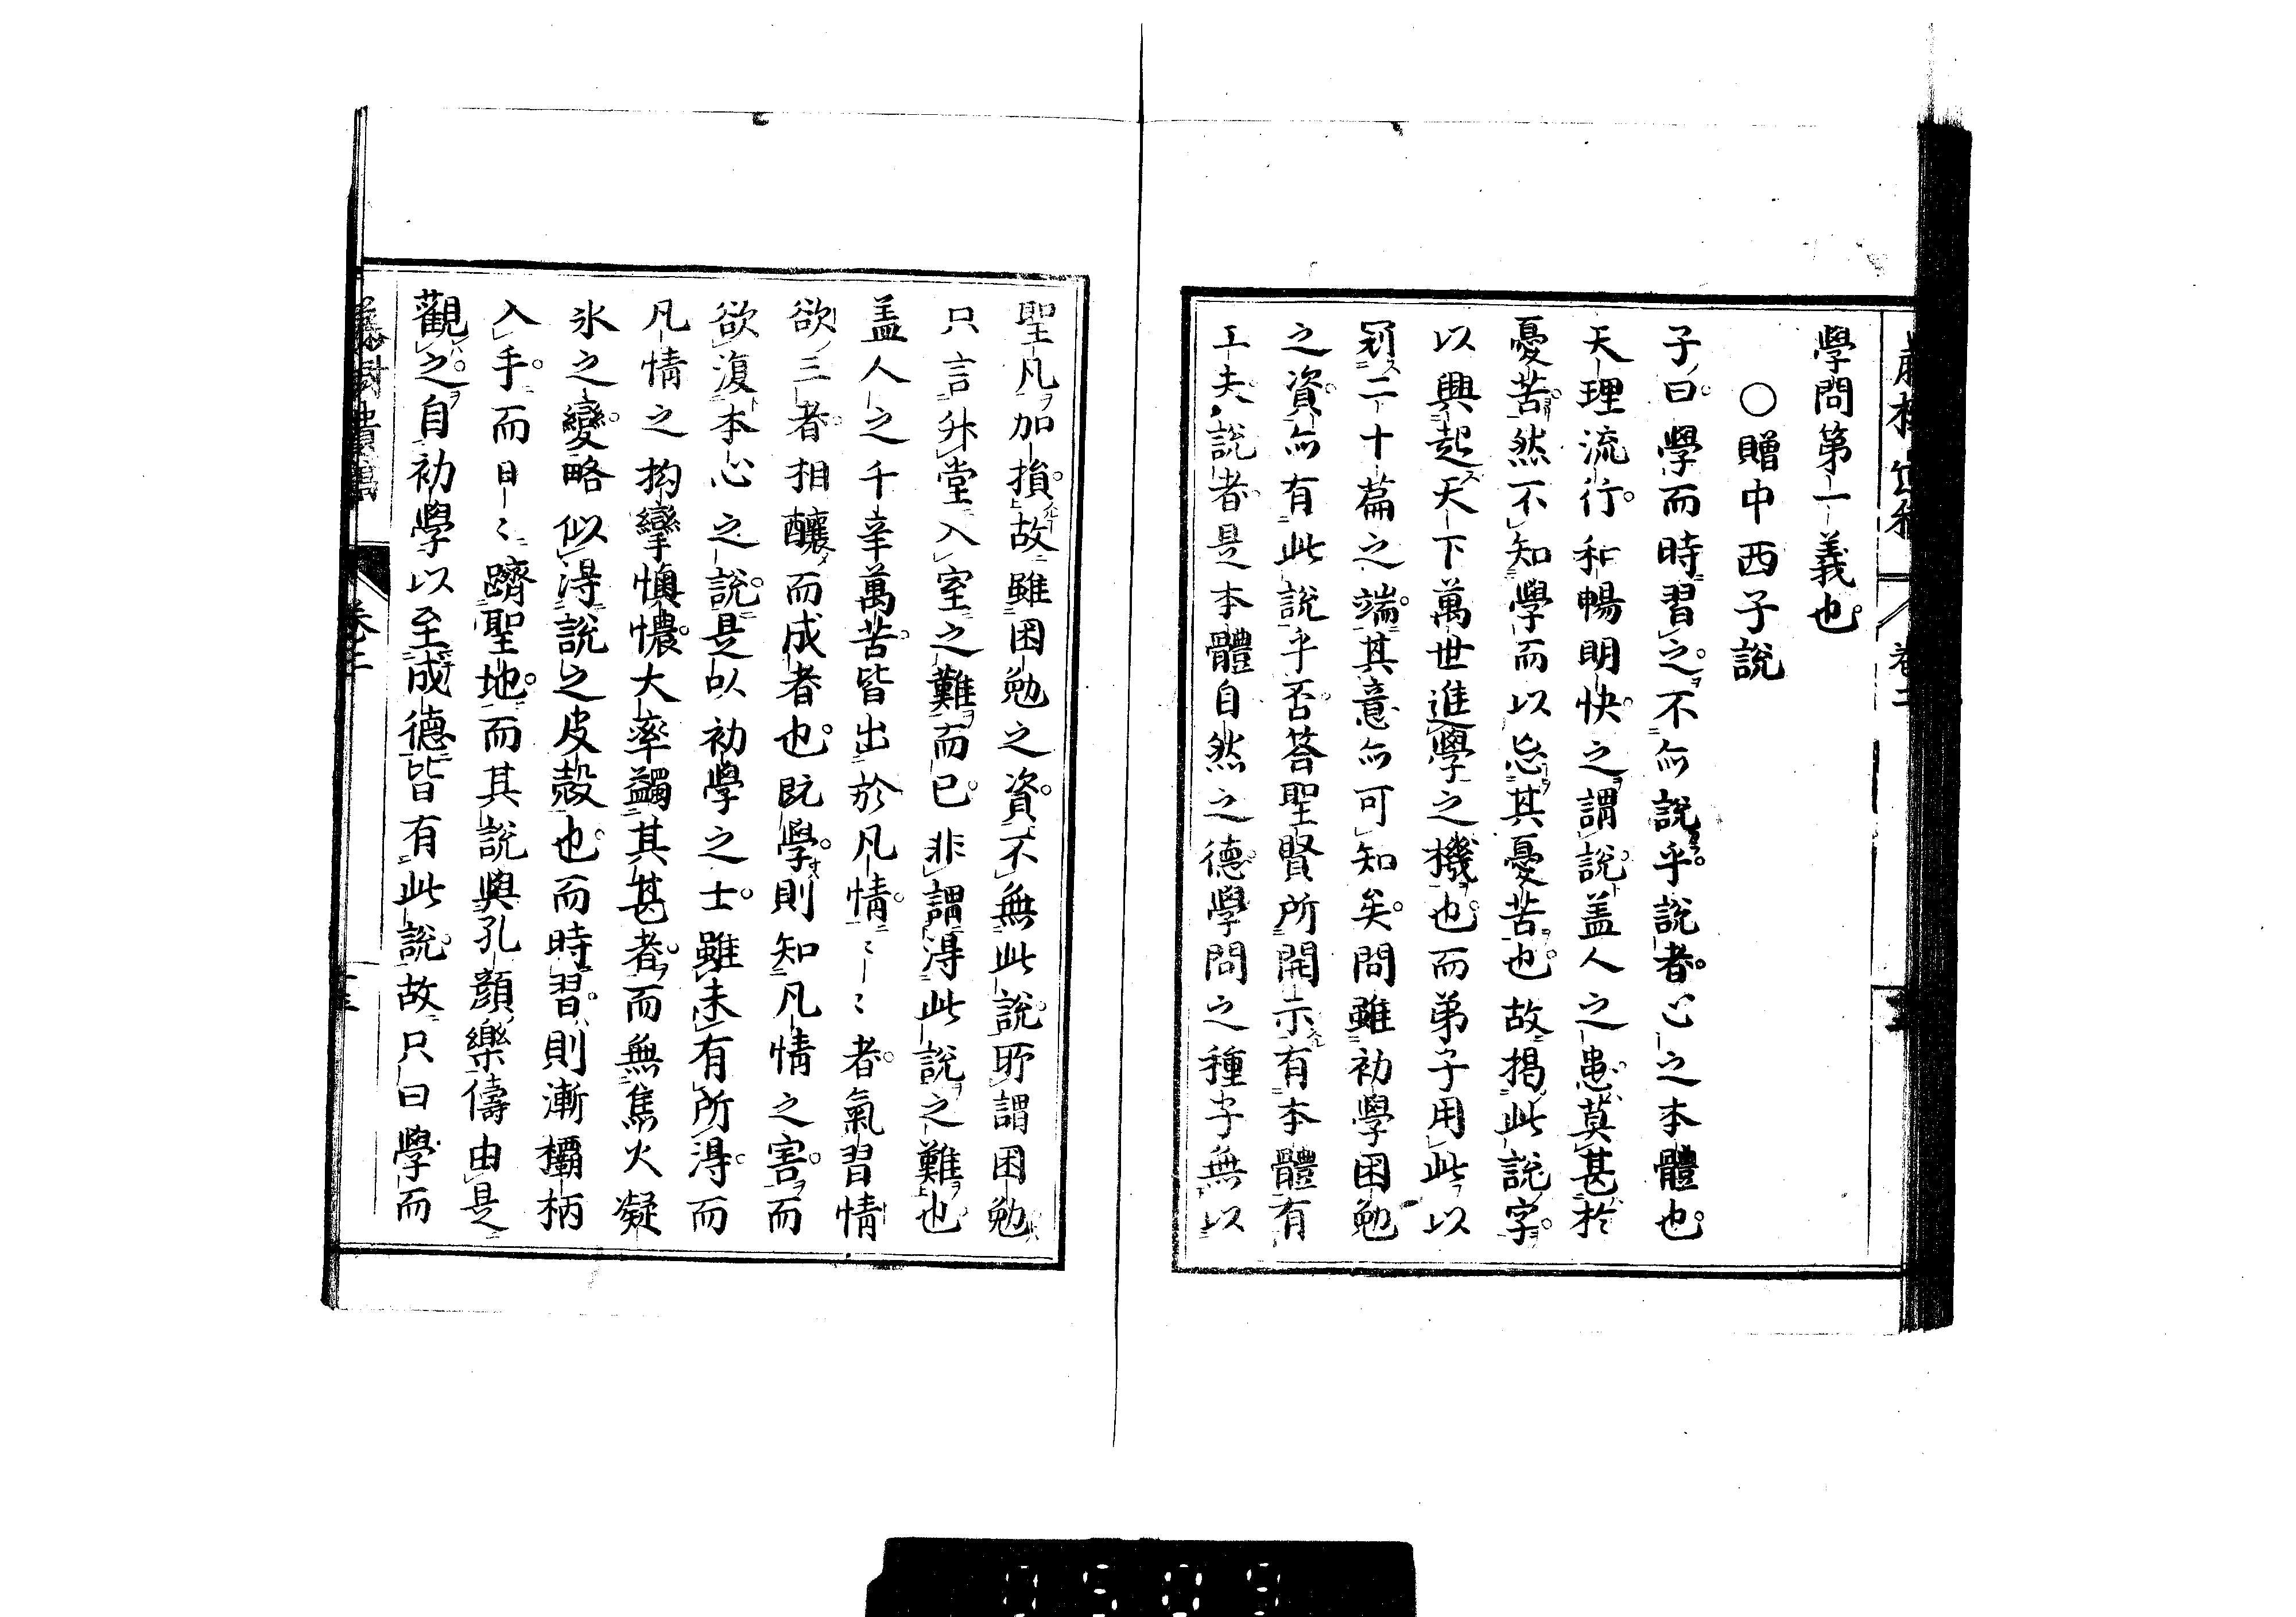 學問第一義也
○贈中西子說
子曰學而時習之不亦說乎說者心之本體也
天理流行和暢明快之謂說盖人之患莫甚於
憂苦然不知學而以忘其憂苦也故揭此說字
以興起天下萬世進學之機也而弟子用此以
冠二十篇之端其意亦可知矣問雖初學困勉
之資亦有此說乎否荅聖賢所開示有本體有
工夫說者是本體自然之德學問之種字無以
聖凡加損故雖困勉之資不無此說耶謂困勉
只言升堂入室之難而已非謂淂此說之難也
盖人之千辛萬苦皆出於凡情〻者氣習情
欲三者相釀而成者也既學則知凡情之害而
欲復本心之說是以初學之士雖未有所淂而
凡情之拘攣懊憹大率蠲其甚者而無焦火凝
氷之變略似淂說之皮殼也而時習則漸欛柄
入手而日〻躋聖地而其說與孔顔樂儔由是
觀之自初學以至成德皆有此說故只曰學而
卷二